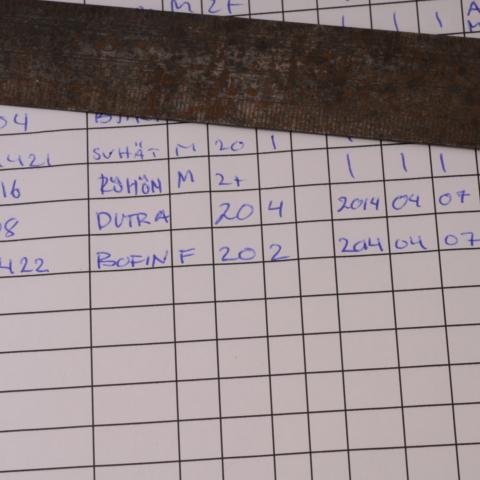 M 2+
| | |
04
421 SVHÄT M 20 1
16 RÜHÖN M 2+ | | |
8 DUTRA 20 4 2014 04 07
422 BOFIN F 20 2 2014 04 07